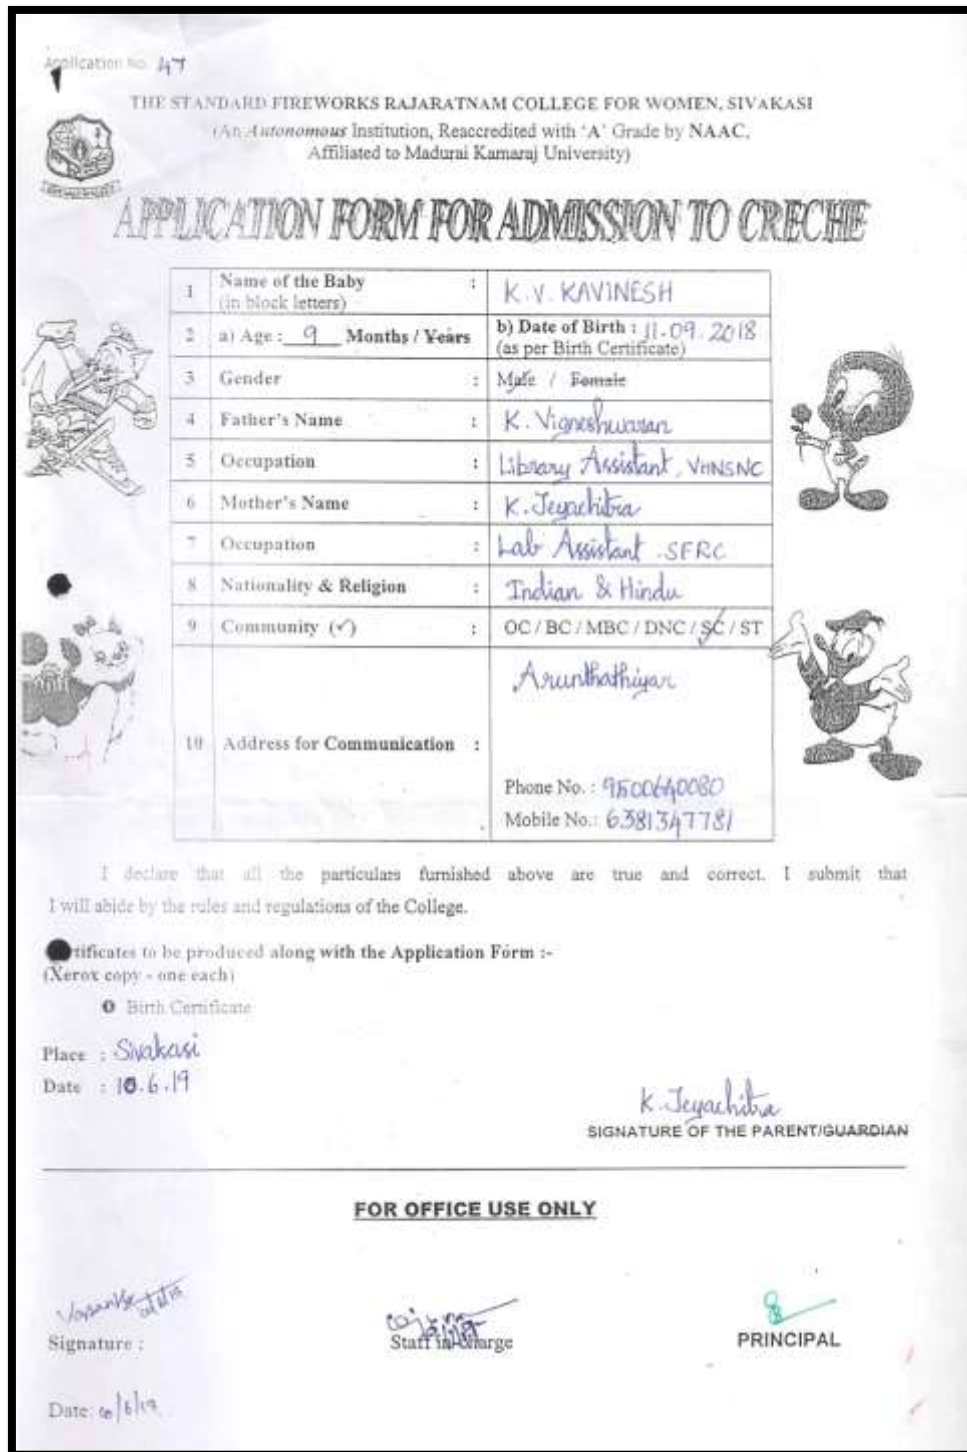 Application No. 47
THE STANDARD FIREWORKS RAJARATNAM COLLEGE FOR WOMEN, SIVAKASI
(An Autonomous Institution, Reaccredited with 'A' Grade by NAAC,
Affiliated to Madurai Kamaraj University)
APPLICATION FORM FOR ADMISSION TO CRECHE
1 Name of the Baby : K.V. KAVINESH
(in block letters)
2 a) Age : 9 Months / Years b) Date of Birth : 11.09.2018
(as per Birth Certificate)
3 Gender : Male / Female
4 Father's Name : K. Vigneshwaran
5 Occupation : Library Assistant, VHNSNC
6 Mother's Name : K. Jeyachitra
7 Occupation : Lab Assistant. SFRC
8 Nationality & Religion : Indian & Hindu
9 Community (✓) : OC / BC / MBC / DNC / SC / ST
Arunthathiyar
10 Address for Communication :
Phone No. : 9500640080
Mobile No.: 6381347781
I declare that all the particulars furnished above are true and correct. I submit that
I will abide by the rules and regulations of the College.
tificates to be produced along with the Application Form :-
(Xerox copy - one each)
Birth Certificate
Place : Sivakasi
Date : 10.6.19
K. Jeyachitra
SIGNATURE OF THE PARENT/GUARDIAN
FOR OFFICE USE ONLY
Signature :
Staff in-charge
PRINCIPAL
Date: 10/6/19